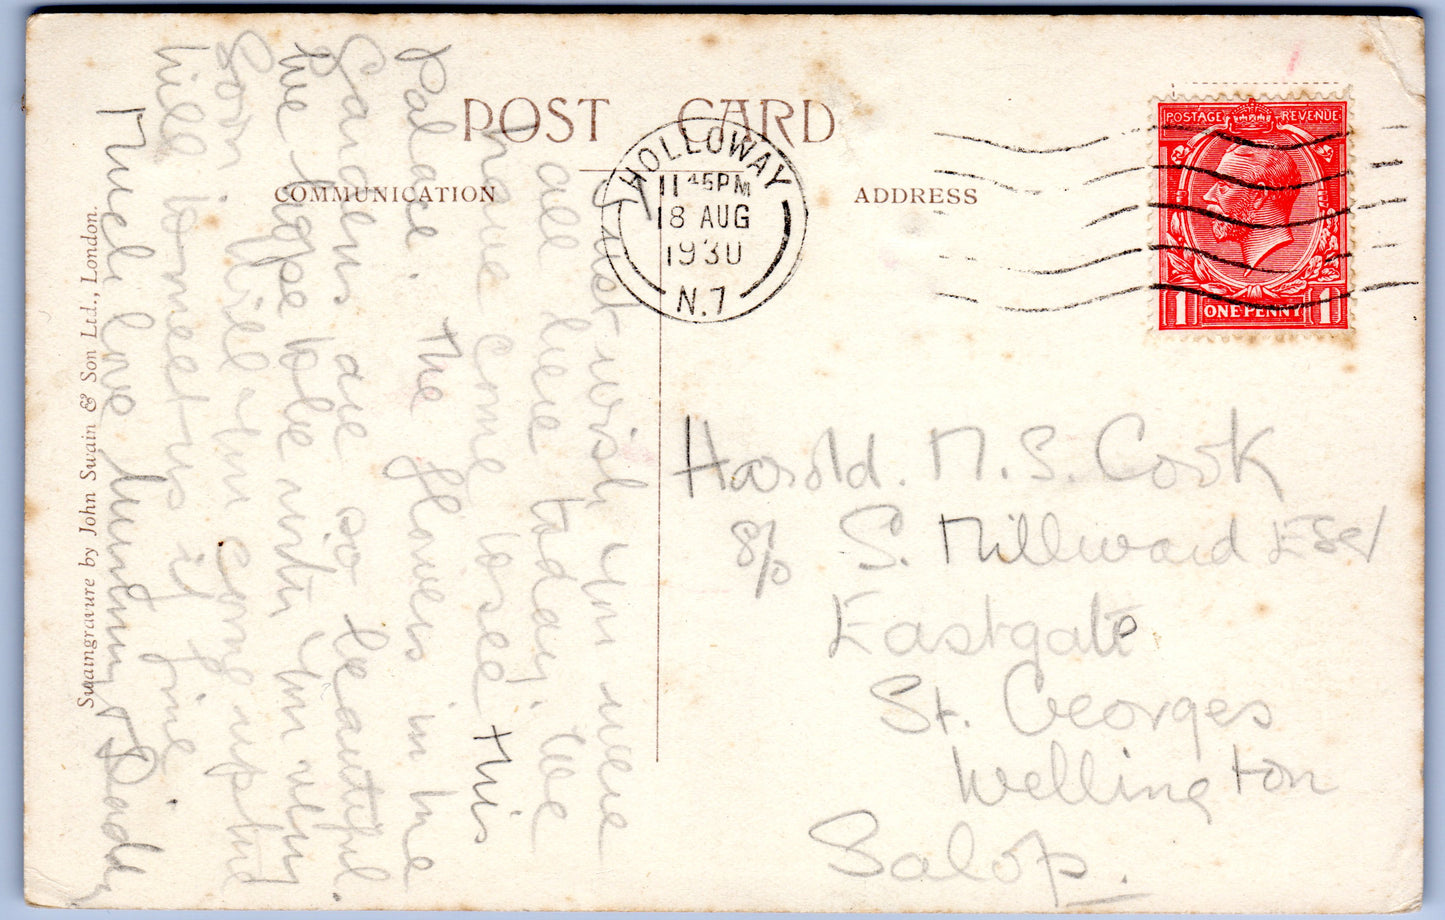 POST CARD
COMMUNICATION
ADDRESS
HOLLOWAY
11 45PM
18 AUG
1930
N.7
POSTAGE REVENUE
1 ONE PENNY 1
I just wish you were
all here today. We
have come to see this
Palace. The flowers in the
Gardens are so beautiful.
We hope to be with you very
Soon. Will you come up the
hill to meet us if fine
Much love Mummy & Daddy
Harold. M. S. Cook
S. Millward Esq
Eastgate
St. Georges
Wellington
Salop.
Swaingravure by John Swain & Son Ltd., London.